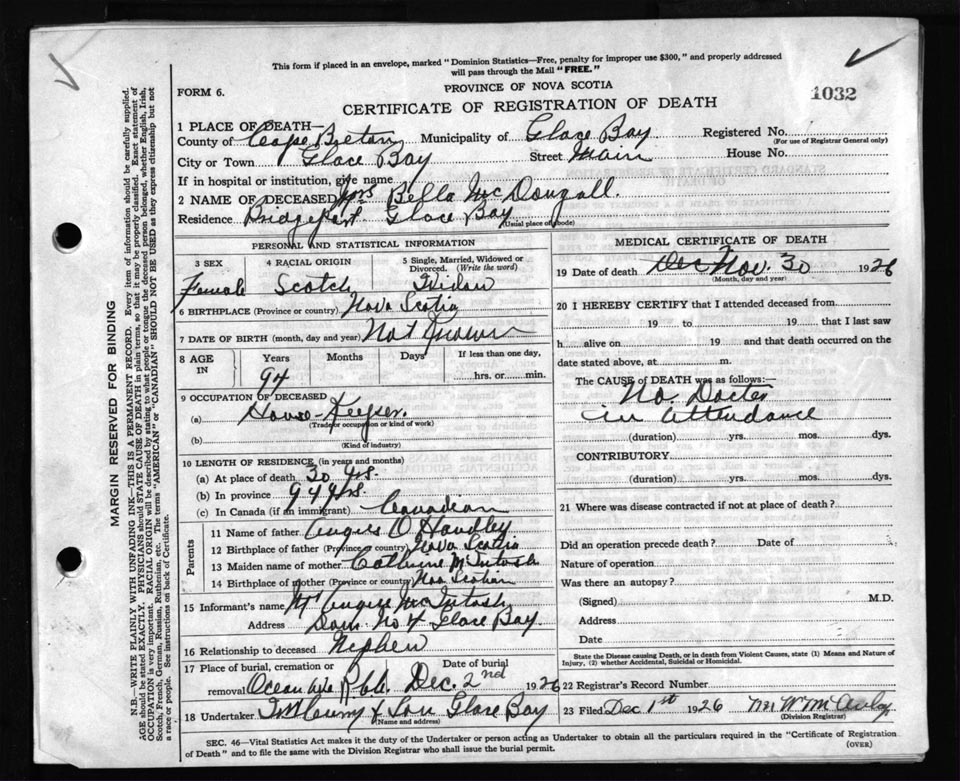 This form if placed in an envelope, marked "Dominion Statistics—Free, penalty for improper use $300," and properly addressed
will pass through the Mail "FREE."
FORM 6.
PROVINCE OF NOVA SCOTIA
CERTIFICATE OF REGISTRATION OF DEATH
1032
1 PLACE OF DEATH—
County of Cape Breton Municipality of Glace Bay Registered No.
(For use of Registrar General only)
City or Town Glace Bay Street Main House No.
If in hospital or institution, give name
2 NAME OF DECEASED Mrs Bella McDougall.
Residence Bridgeport Glace Bay
(Usual place of abode)
PERSONAL AND STATISTICAL INFORMATION
3 SEX
Female
4 RACIAL ORIGIN
Scotch
5 Single, Married, Widowed or Divorced. (Write the word)
Widow
6 BIRTHPLACE (Province or country) Nova Scotia
7 DATE OF BIRTH (month, day and year) Not Known
8 AGE IN
Years Months Days If less than one day,
94
hrs. or min.
9 OCCUPATION OF DECEASED
(a) House-Keeper.
(Trade or occupation or kind of work)
(b)
(Kind of industry)
10 LENGTH OF RESIDENCE (in years and months)
(a) At place of death 30 yrs.
(b) In province 94 yrs.
(c) In Canada (if an immigrant) Canadian
Parents
11 Name of father Angus O Handley
12 Birthplace of father (Province or country) Nova Scotia
13 Maiden name of mother Catherine McIntosh
14 Birthplace of mother (Province or country) Nova Scotian
15 Informant's name Angus McIntosh
Address Dom. No 4 Glace Bay.
16 Relationship to deceased Nephew
17 Place of burial, cremation or removal Date of burial
Dec. 2nd 1926
18 Undertaker & Son Glace Bay
(Name and address)
MEDICAL CERTIFICATE OF DEATH
19 Date of death Dec Nov. 30 1926
(Month, day and year)
20 I HEREBY CERTIFY that I attended deceased from
19 to 19 that I last saw
h alive on 19 and that death occurred on the
date stated above, at m.
The CAUSE of DEATH was as follows:—
No Doctor
in attendance
(duration) yrs. mos. dys.
CONTRIBUTORY
(duration) yrs. mos. dys.
21 Where was disease contracted if not at place of death?
Did an operation precede death? Date of
Nature of operation
Was there an autopsy?
(Signed) M.D.
Address
Date
State the Disease causing Death, or in death from Violent Causes, state (1) Means and Nature of
Injury, (2) whether Accidental, Suicidal or Homicidal.
22 Registrar's Record Number
23 Filed Dec 1st 1926
(Division Registrar)
SEC. 46—Vital Statistics Act makes it the duty of the Undertaker or person acting as Undertaker to obtain all the particulars required in the "Certificate of Registration
of Death" and to file the same with the Division Registrar who shall issue the burial permit.
(OVER)
MARGIN RESERVED FOR BINDING
N.B.—WRITE PLAINLY WITH UNFADING INK—THIS IS A PERMANENT RECORD. Every item of information should be carefully supplied.
AGE should be stated EXACTLY. PHYSICIANS should STATE CAUSE OF DEATH in plain terms, so that it may be properly classified. Exact statement of
OCCUPATION is very important. RACIAL ORIGIN will be described by stating to what people or tongue the deceased person belonged, whether English, Irish,
Scotch, French, German, Russian, Ruthenian, etc. The terms "AMERICAN" or "CANADIAN" SHOULD NOT BE USED as they express citizenship but not
a race or people. See instructions on back of Certificate.